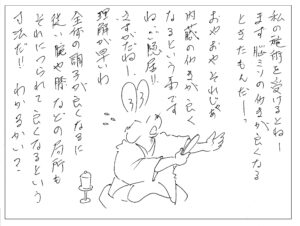 私の施術を受けるとねー
まず脳ミソの働きが良くなる
ときたもんだー。
おやおやそれじゃあ
内臓の働きが良く
なるという事です
ねご隠居!!
さすがだねー
理解が早いわ
全体の調子が良くなるに
従い腕や膝などの局所も
それにつられて良くなるという
寸法だ!! わかるかい?